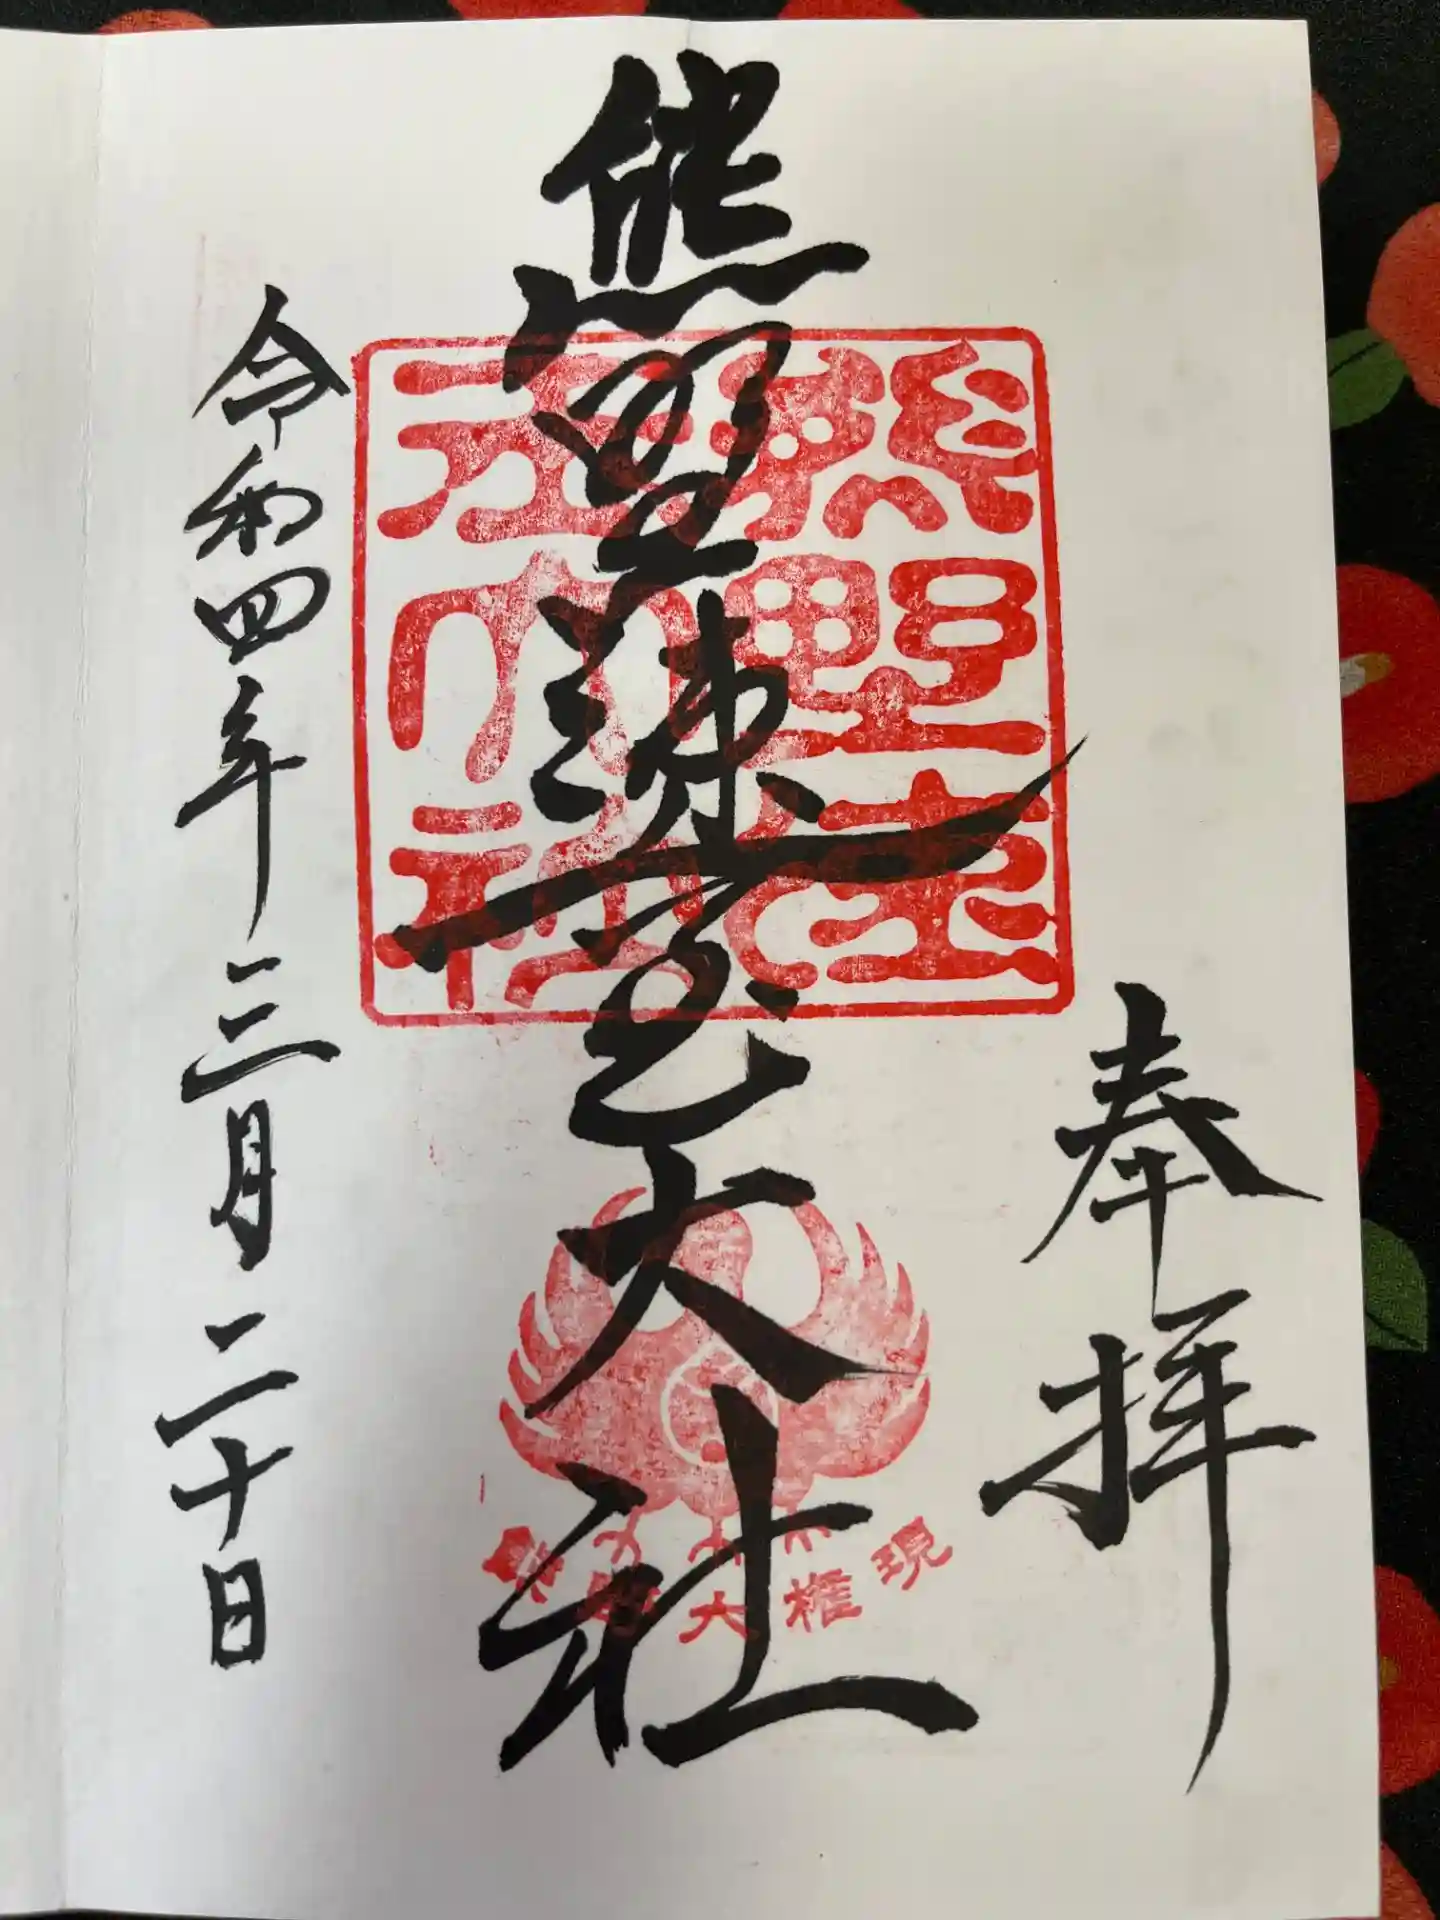 奉拝
熊野速玉大社
熊野速玉大社
熊野大権現
令和四年三月二十日